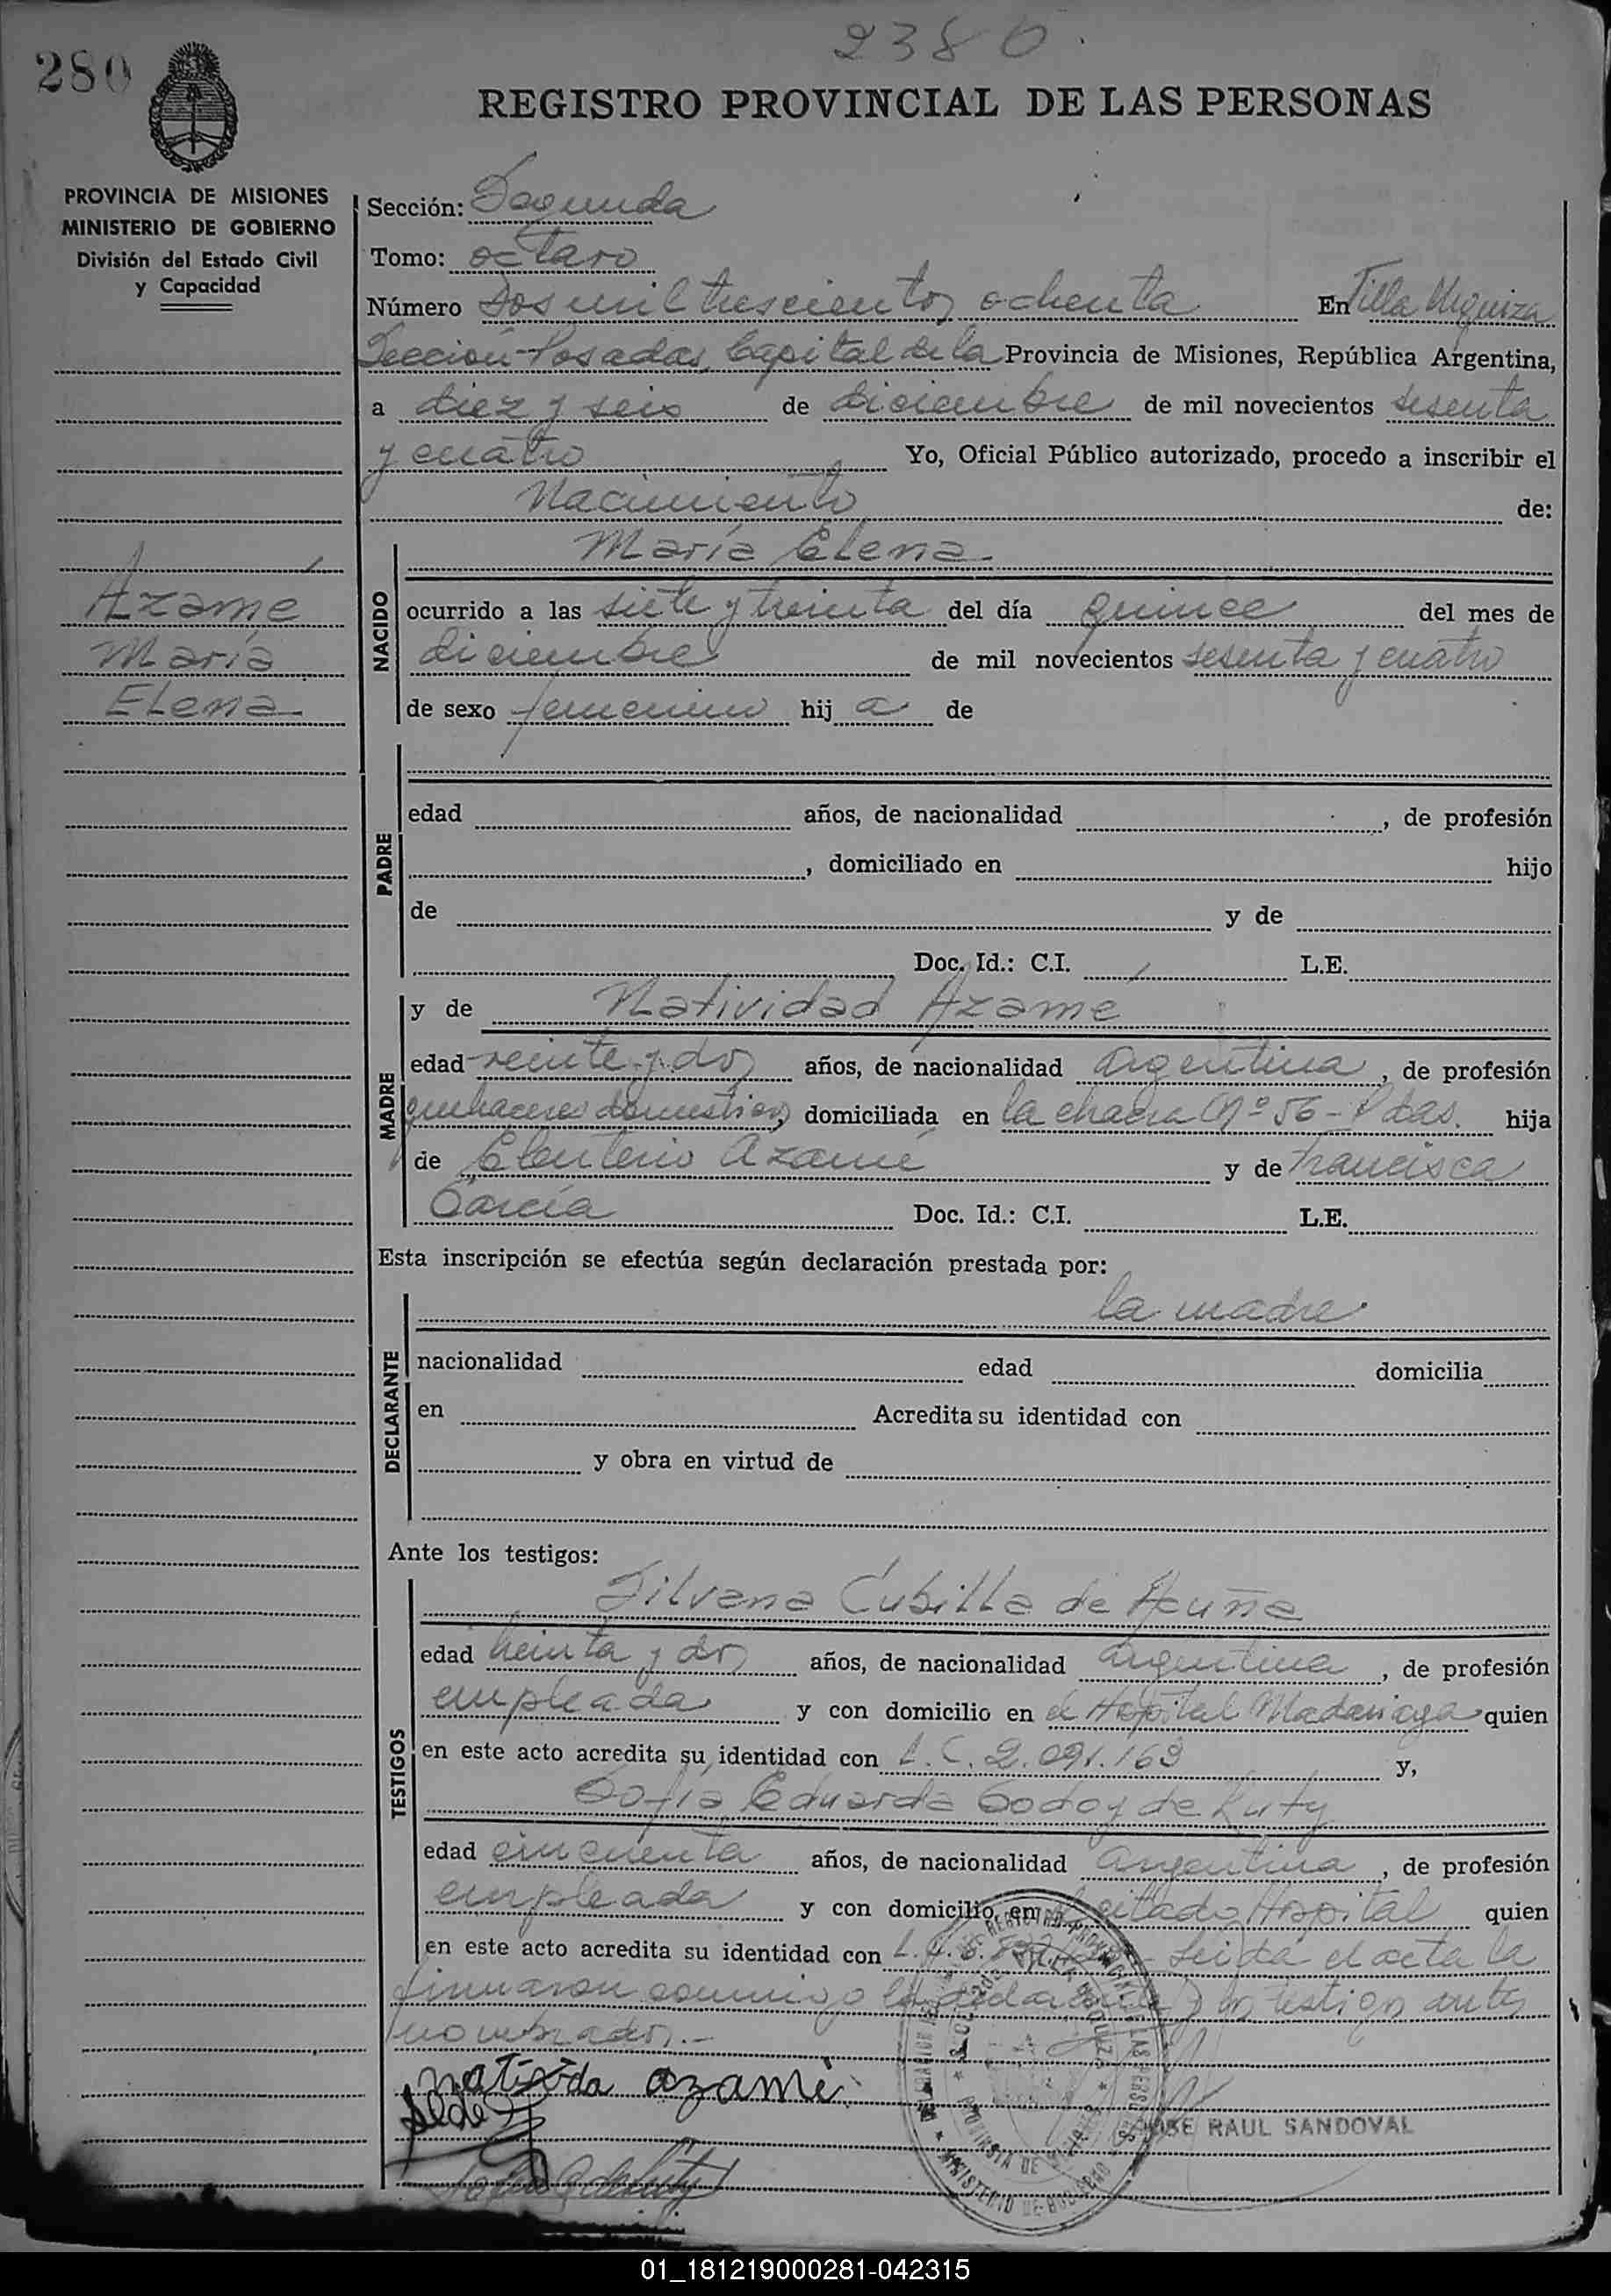 2380
280
REGISTRO PROVINCIAL DE LAS PERSONAS
PROVINCIA DE MISIONES
MINISTERIO DE GOBIERNO
División del Estado Civil
y Capacidad
Azamé
María
Elena
Sección: Segunda
Tomo: octavo
Número Dos mil trescientos ochenta En Villa Urquiza
Sección Posadas, Capital de la Provincia de Misiones, República Argentina,
a diez y seis de diciembre de mil novecientos sesenta
y cuatro Yo, Oficial Público autorizado, procedo a inscribir el
Nacimiento de:
NACIDO
María Elena
ocurrido a las siete y treinta del día quince del mes de
diciembre de mil novecientos sesenta y cuatro
de sexo femenino hij a de
PADRE
edad años, de nacionalidad , de profesión
, domiciliado en hijo
de y de
Doc. Id.: C.I. L.E.
MADRE
y de Natividad Azamé
edad veinte y dos años, de nacionalidad argentina, de profesión
quehaceres domesticos, domiciliada en la chacra Nº 56 - Pdas. hija
de Eleuterio Azamé y de Francisca
García Doc. Id.: C.I. L.E.
Esta inscripción se efectúa según declaración prestada por:
DECLARANTE
la madre
nacionalidad edad domicilia
en Acredita su identidad con
y obra en virtud de
Ante los testigos:
TESTIGOS
Silvana Cubilla de Acuña
edad treinta y dos años, de nacionalidad argentina, de profesión
empleada y con domicilio en el Hospital Madariaga quien
en este acto acredita su identidad con L.C. 2.091.163 y,
Sofía Eduarda Godoy de Ruty
edad cincuenta años, de nacionalidad argentina, de profesión
empleada y con domicilio en citado Hospital quien
en este acto acredita su identidad con L. Leída el acta la
firmaron conmigo la declarante y los testigos antes
nombrados.-
nativida azamé
JOSE RAUL SANDOVAL
01_181219000281-042315